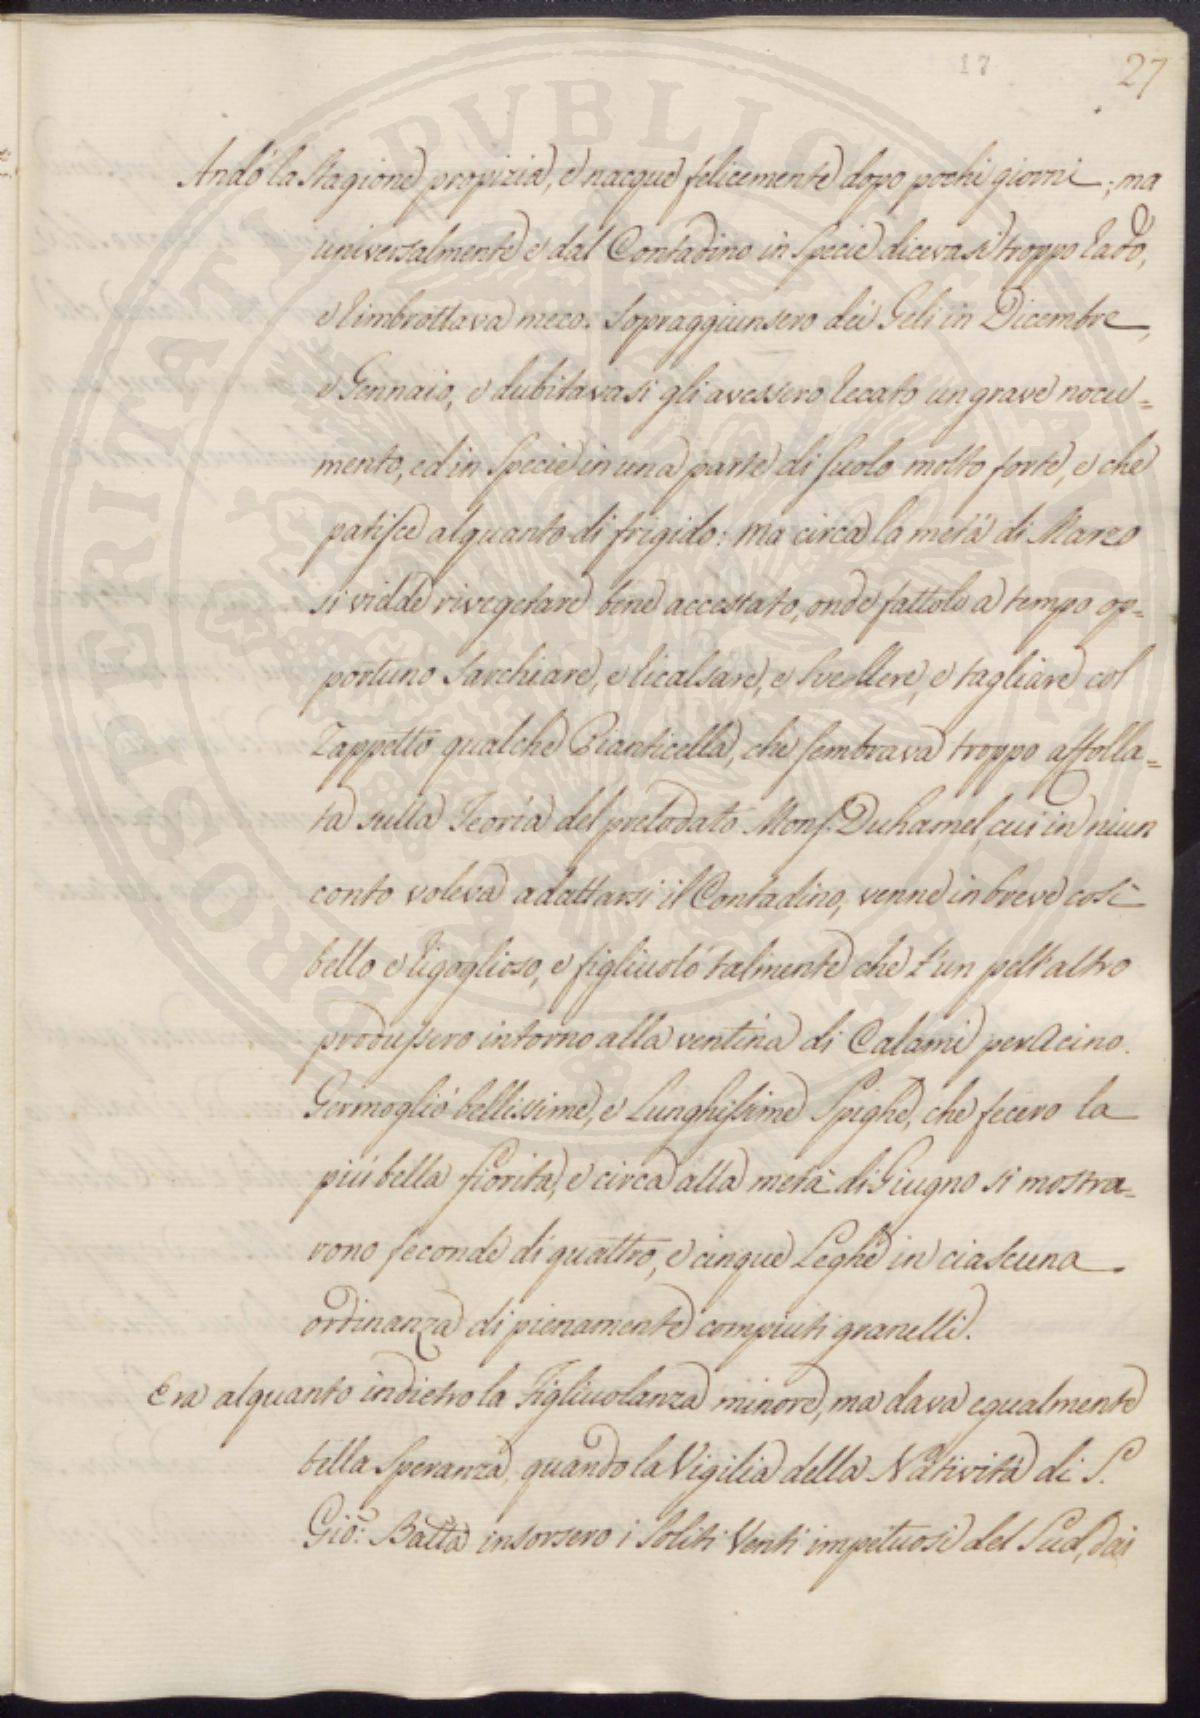 17
27
Andò la Stagione propizia, e nacque felicemente dopo pochi giorni; ma
universalmente e dal Contadino in specie dicevasi troppo rado,
e rimbrottava meco. Sopraggiunsero dei Geli in Dicembre,
e Gennaio, e dubitavasi gli avessero recato un grave nocu=
mento, ed in specie in una parte di suolo molto forte, e che
patisce alquanto di frigido: ma circa la metà di Marzo
si vidde rivegetare bene accestato, onde fattolo a tempo op=
portuno sarchiare, e ricalsare, e svellere, e tagliare col
Zappetto qualche Pianticella, che sembrava troppo affolla=
ta sulla Teoria del prelodato Mons. Duhamel, cui in niun
conto voleva adattarsi il Contadino, venne in breve così
bello e rigoglioso, e figliuolò talmente che l'un pell'altro
produssero intorno alla ventina di Calami per Acino.
Germogliò bellissime, e Lunghissime Spighe, che fecero la
più bella fiorita, e circa alla metà di Giugno si mostra=
rono feconde di quattro, e cinque Leghe in ciascuna
ordinanza di pienamente compiuti granelli.
Era alquanto indietro la Figliuolanza minore, ma dava egualmente
bella Speranza, quando la Vigilia della Natività di S.
Gio: Batta insorsero i soliti Venti impetuosi del Sud, dai
PUBLICAE
PROSPERITATI